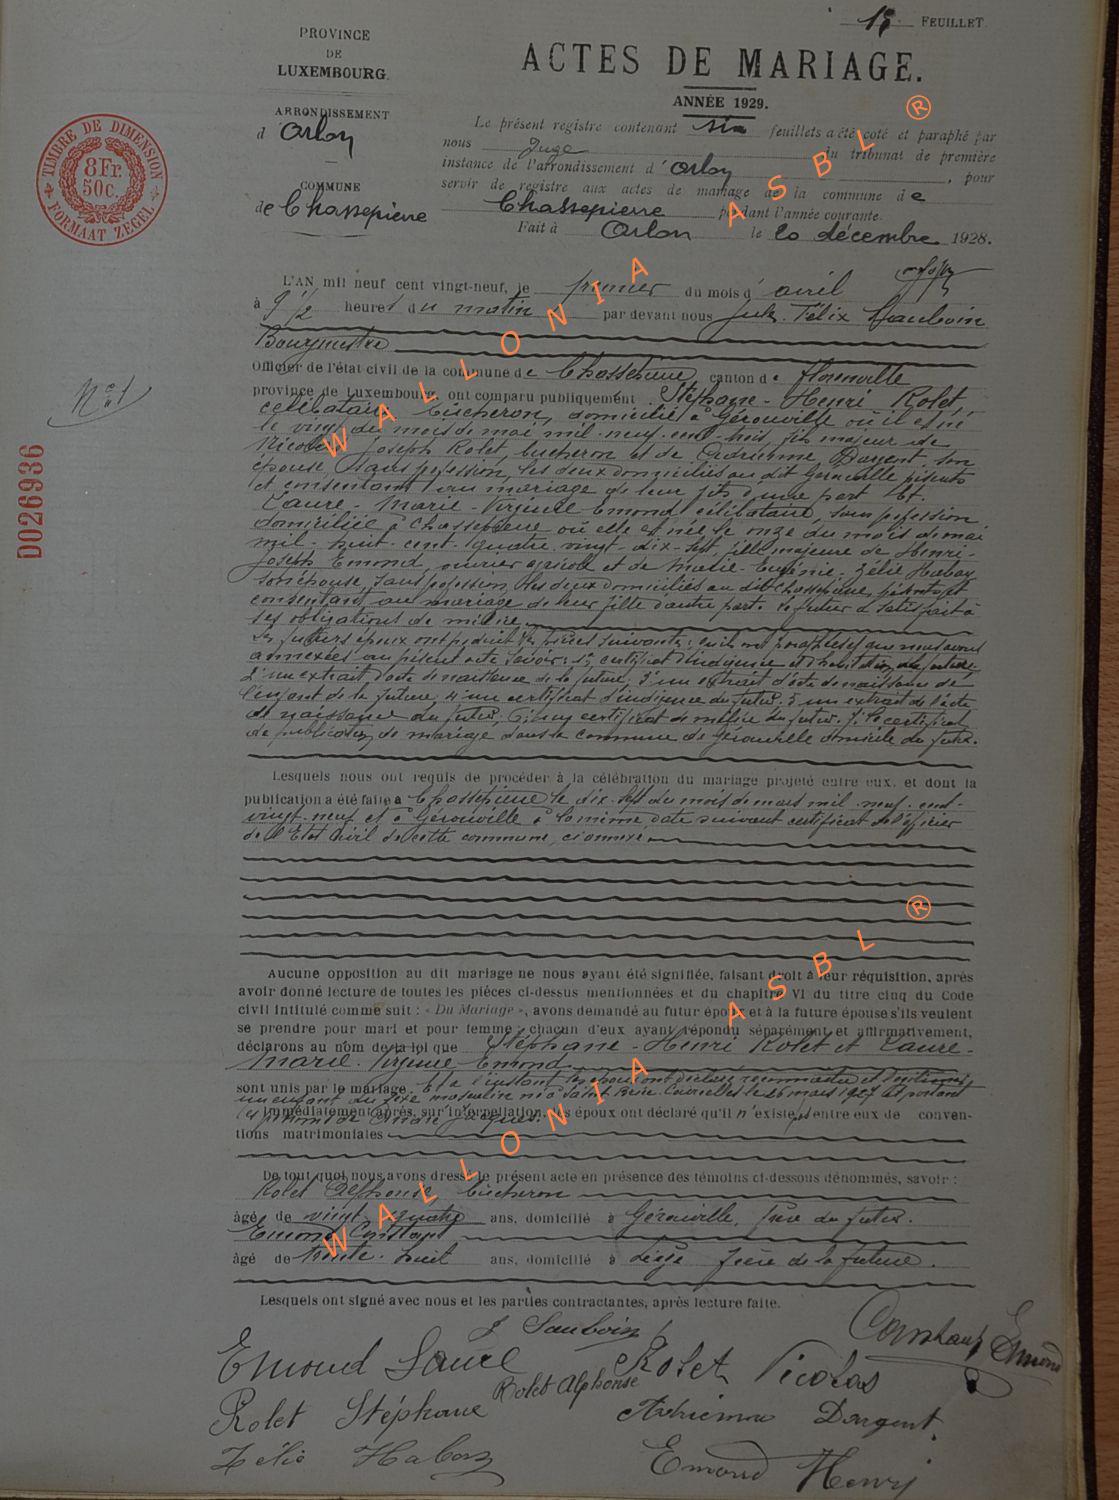 1er FEUILLET.
PROVINCE
DE
LUXEMBOURG.
ACTES DE MARIAGE.
ANNÉE 1929.
ARRONDISSEMENT
d' Arlon
COMMUNE
de Chassepierre
TIMBRE DE DIMENSION
8Fr.
50c.
FORMAAT ZEGEL
Le présent registre contenant six feuillets a été coté et paraphé par
nous Juge du tribunal de première
instance de l'arrondissement d'Arlon, pour
servir de registre aux actes de mariage de la commune de
Chassepierre pendant l'année courante.
Fait à Arlon le 20 décembre 1928.
L'AN mil neuf cent vingt-neuf, le premier du mois d'avril
à 9 1/2 heures du matin par devant nous Jules Félix Sauboin
Bourgmestre
Officier de l'état civil de la commune de Chassepierre canton de Florenville
province de Luxembourg, ont comparu publiquement Stéphane-Henri Rolet,
célibataire bûcheron, domicilié à Gérouville où il est né
le vingt du mois de mai mil-neuf-cent-trois, fils majeur de
Nicolas Joseph Rolet, bûcheron et de Adrienne Dargent son
épouse sans profession, les deux domiciliés au dit Gérouville présents
et consentant au mariage de leur fils d'une part. Et
Laure-Marie-Virginie Emond célibataire, sans profession
domiciliée à Chassepierre où elle est née le onze du mois de mai
mil-huit-cent-quatre-vingt-dix-sept, fille majeure de Henri-
Joseph Emond, ouvrier agricole et de Marie-Eugénie-Zélie Habay
son épouse, sans profession, les deux domiciliés au dit Chassepierre, présents et
consentant au mariage de leur fille d'autre part. Le futur a satisfait à
ses obligations de milice.
Les futurs époux ont produit les pièces suivantes: qu'ils ont paraphées et que nous avons
annexées au présent acte savoir: 1° certificat d'indigence et d'habitation de la future,
2° un extrait d'acte de naissance de la future, 3° un extrait d'acte de naissance de
l'enfant de la future, 4° un certificat d'indigence du futur. 5° un extrait de l'acte
de naissance du futur, 6° un certificat de milice du futur. 7° le certificat
de publication de mariage dans la commune de Gérouville domicile du futur.
Lesquels nous ont requis de procéder à la célébration du mariage projeté entre eux, et dont la
publication a été faite à Chassepierre le dix-sept du mois de mars mil-neuf-cent-
vingt-neuf et à Gérouville à la même date suivant certificat de l'officier
de l'Etat Civil de cette commune, ci annexé
Aucune opposition au dit mariage ne nous ayant été signifiée, faisant droit à leur réquisition, après
avoir donné lecture de toutes les pièces ci-dessus mentionnées et du chapitre VI du titre cinq du Code
civil intitulé comme suit : « Du Mariage », avons demandé au futur époux et à la future épouse s'ils veulent
se prendre pour mari et pour femme; chacun d'eux ayant répondu séparément et affirmativement,
déclarons au nom de la loi que Stéphane-Henri Rolet et Laure-
Marie-Virginie Emond
sont unis par le mariage. Et à l'instant les époux ont déclaré reconnaître et légitimer
un enfant du sexe masculin né à le 26 mars 1927 et portant
les prénoms de André Jacques.
Immédiatement après, sur interpellation, les époux ont déclaré qu'il n'existe pas entre eux de conven-
tions matrimoniales
De tout quoi nous avons dressé le présent acte en présence des témoins ci-dessous dénommés, savoir :
Rolet Alphonse bûcheron
âgé de vingt-quatre ans, domicilié à Gérouville, frère du futur.
Emond Constant
âgé de trente-huit ans, domicilié à Liège frère de la future.
Lesquels ont signé avec nous et les parties contractantes, après lecture faite.
J Sauboin
Constant Emond
Emond Laure
Rolet Nicolas
Rolet Alphonse
Rolet Stéphane
Adrienne Dargent.
Zélie Habay
Emond Henri
N° 1
D026936
WALLONIA ASBL ®
WALLONIA ASBL ®